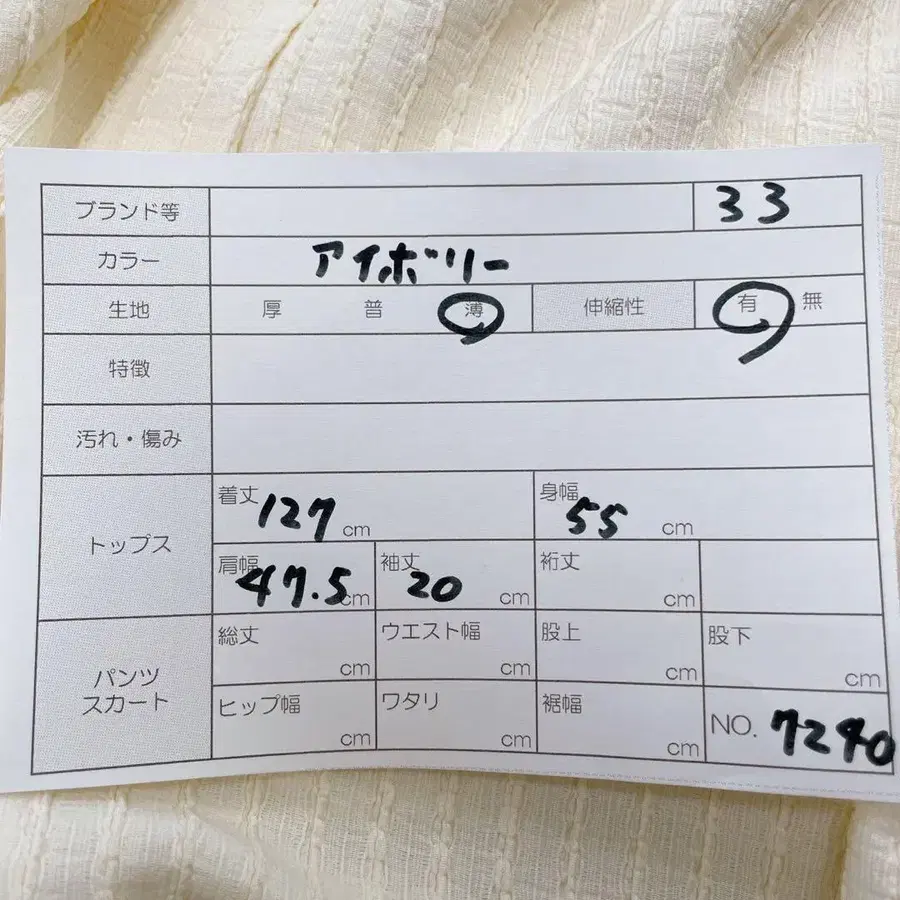 ブランド等 33
カラー アイボリー
生地 厚 普 薄 伸縮性 有 無
特徴
汚れ・傷み
トップス
着丈 127 cm 身幅 55 cm
肩幅 47.5 cm 袖丈 20 cm 裄丈 cm
パンツ
スカート
総丈 cm ウエスト幅 cm 股上 cm 股下 cm
ヒップ幅 cm ワタリ cm 裾幅 cm NO. 7240